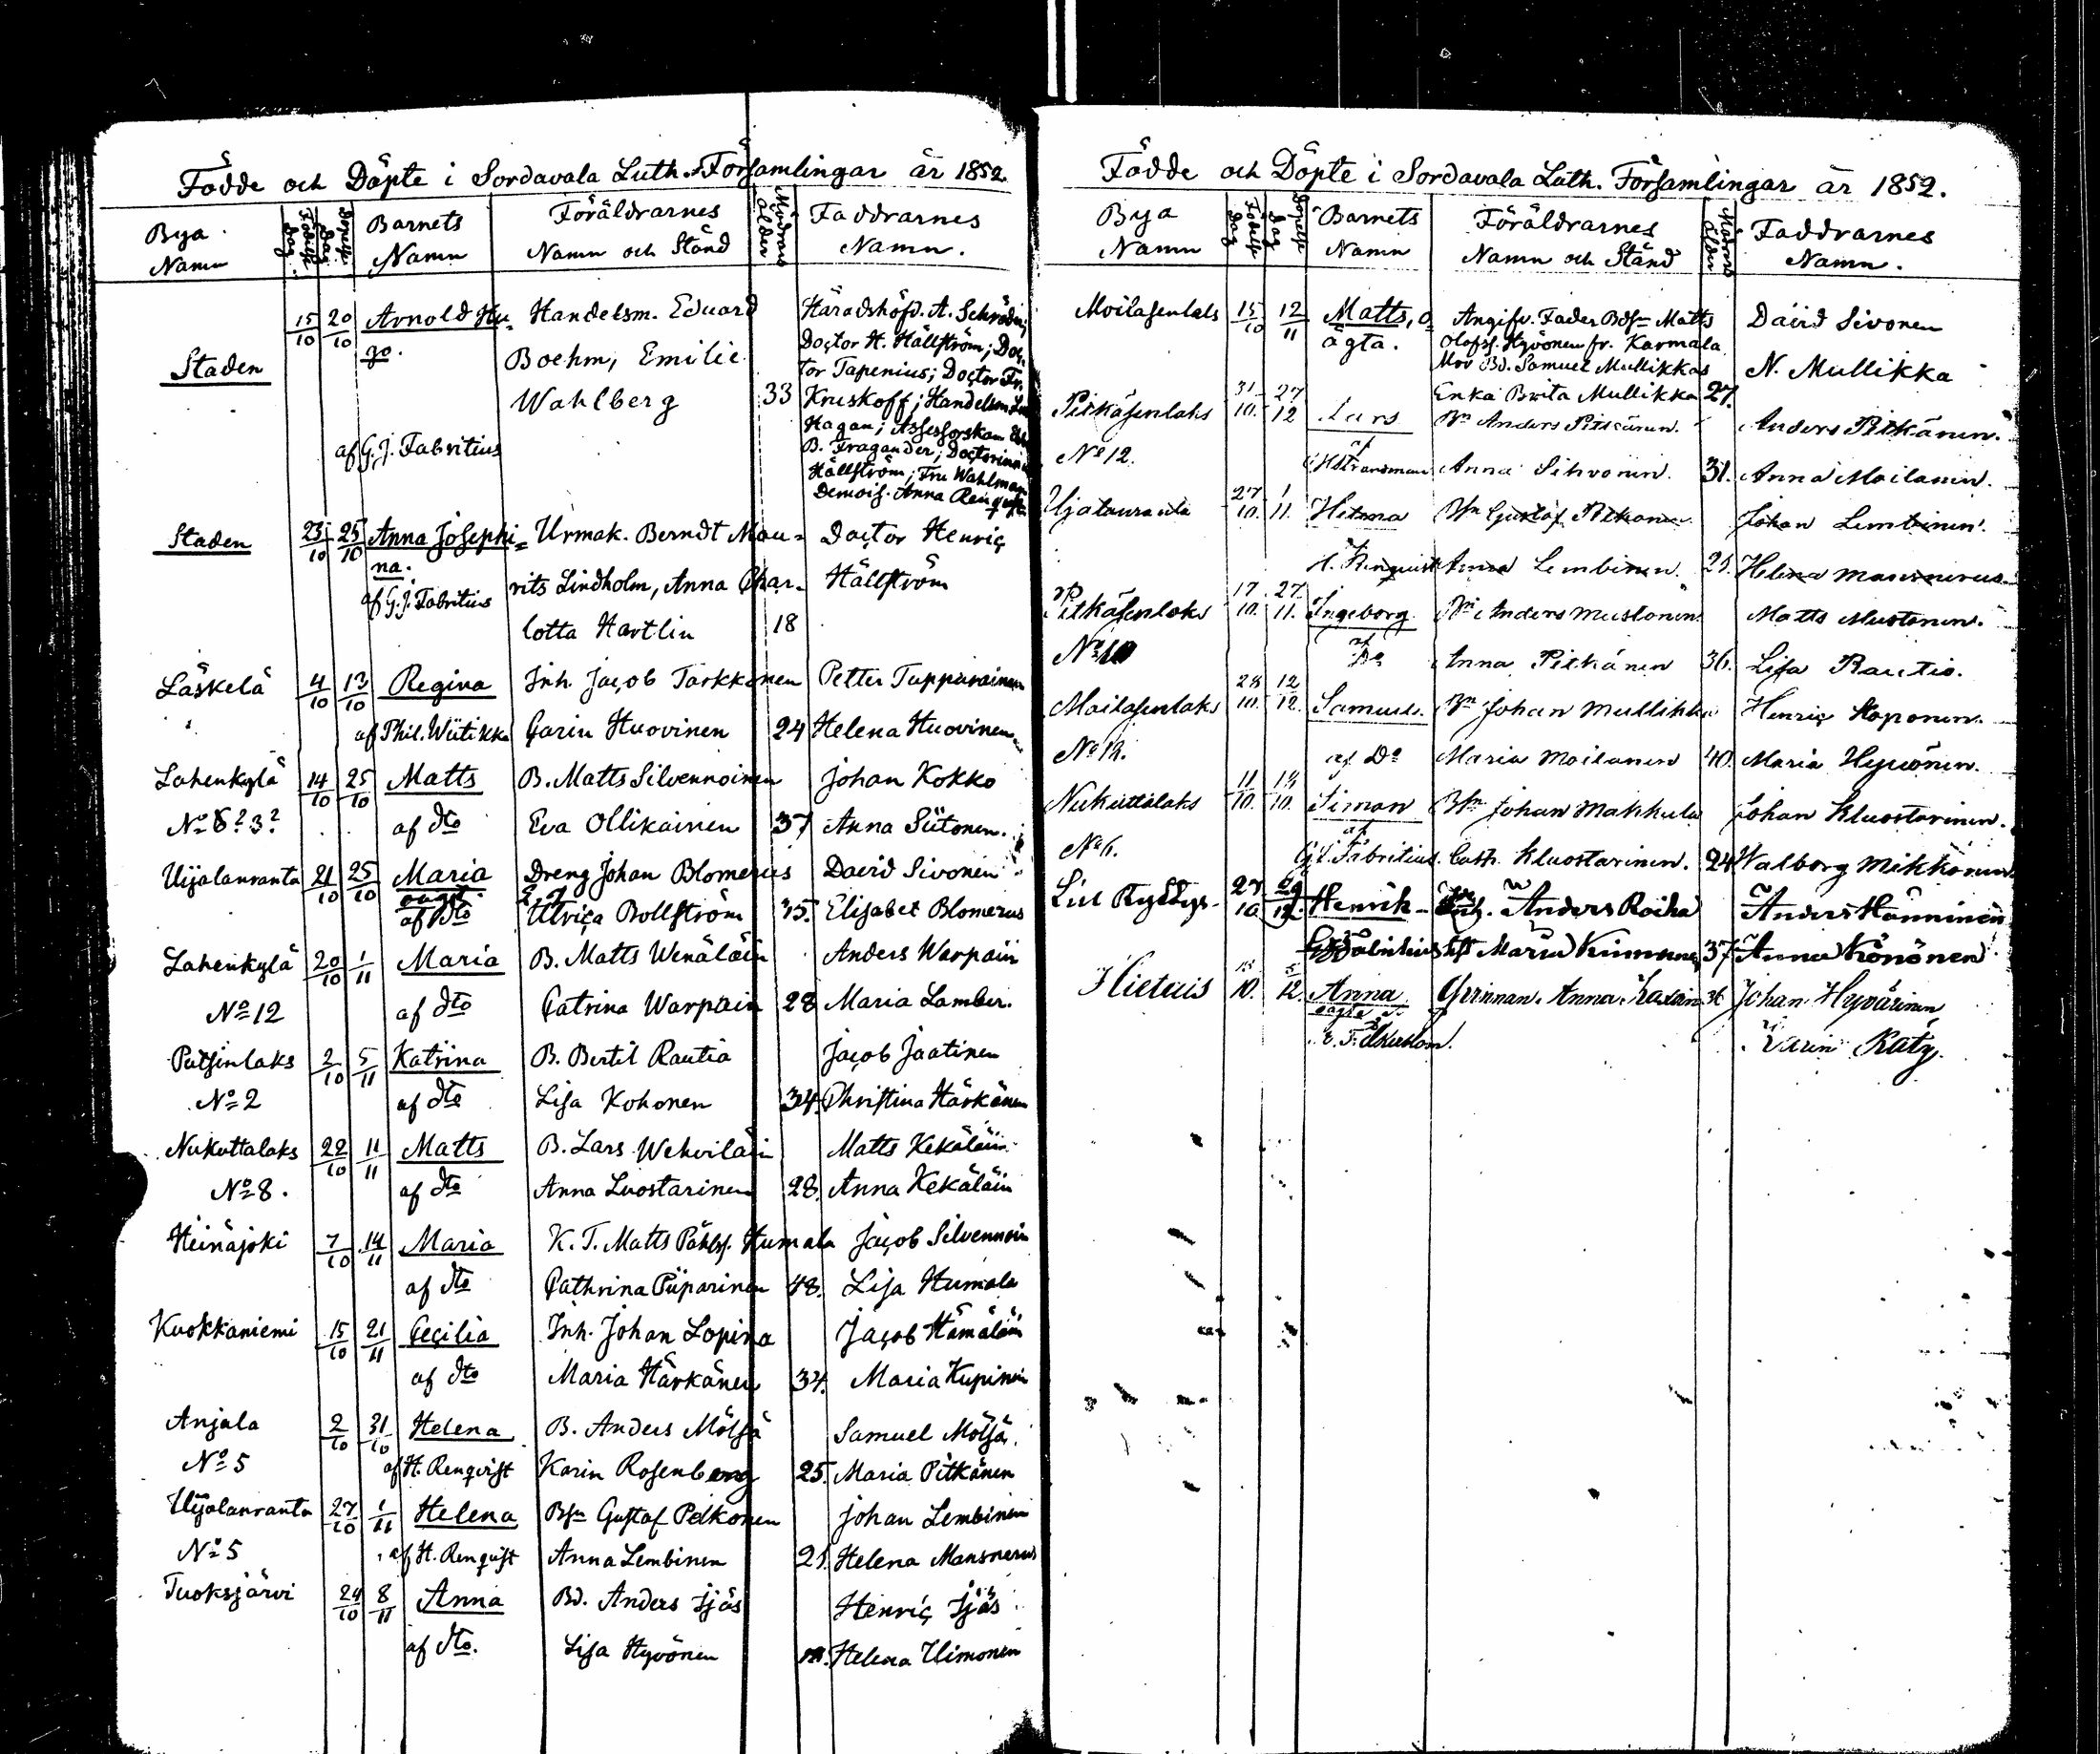 Födde och Döpte i Sordavala Luth. Församlingar år 1852.
Bya Namn Födelse Dag Döpelse Dag Barnets Namn Föräldrarnes Namn och Stånd Modrens Ålder Faddrarnes Namn.
15/10 20/10 Arnold Hu- Handelsm. Eduard Häradshöfd. A. Schröder;
go. Doctor H. Hällström; Doc-
Staden Boehm, Emilie tor Tapenius; Doctor Fr.
Wahlberg 33 Kruskoff; Handelsm
Hagan; Assessorskan
af G. J. Fabritius B. Fragander; Doctorinnan
Hällström; Fru Wahlman
Demois. Anna Renqvist
Staden 23/10 25/10 Anna Josephi- Urmak. Berndt Mau- Doctor Henric
na.
af G. J. Fabritius rits Lindholm, Anna Char- Hällström
lotta Hartlin 18
Läskelä 4/10 13/10 Regina Inh. Jacob Tarkkonen Petter Tuppurainen
af Phil. Wiitikka Carin Huovinen 24 Helena Huovinen
Lahenkylä 14/10 25/10 Matts B. Matts Silvennoinen Johan Kokko
No 8? 3? af dto Eva Ollikainen 37 Anna Siitonen.
Uijalanranta 21/10 25/10 Maria Dreng Johan Blomerus David Sivonen
oägt.
af dto Ulrica Bollström 35. Elisabet Blomerus
Lahenkylä 20/10 1/11 Maria B. Matts Wenäläin Anders Warpain
No 12 af dto Catrina Warpain 28 Maria Lamber.
Patsinlaks 2/10 5/11 Katrina B. Bertil Rautia Jacob Jaatinen
No 2 af dto Lisa Kohonen 34. Christina Härkönen
Nukuttalaks 22/10 11/11 Matts B. Lars Wehviläin Matts Kekäläin
No 8. af dto Anna Luostarinen 28. Anna Kekäläin
Heinäjoki 7/10 14/11 Maria K. T. Matts Påhlss. Humala Jacob Silvennoin
af dto Cathrina Piiparinen 48. Lisa Humala
Kuokkaniemi 15/10 21/11 Cecilia Inh. Johan Lopina Jacob Hämäläin
af dto Maria Härkänen 34. Maria Kupinin
Anjala 2/10 31/10 Helena B. Anders Mölsä Samuel Mölsä.
No 5 af H. Renqvist Karin Rosenberg 25. Maria Pitkänen
Uijalanranta 27/10 1/11 Helena Bsn Gustaf Pelkonen Johan Lembinen
No 5 af H. Renqvist Anna Lembinen 21. Helena Mansnerus
Tuoksjärvi 24/10 8/11 Anna Bd. Anders Ijäs Henric Ijäs
af dto. Lisa Hyvönen Helena Ilimonen
Födde och Döpte i Sordavala Luth. Församlingar år 1852.
Bya Namn Födelse Dag Döpelse Dag Barnets Namn Föräldrarnes Namn och Stånd Modrens Ålder Faddrarnes Namn.
Moilasenlaks 15/10 12/11 Matts, o- Angifv. Fader Bdsn Matts David Sivonen
ägta. Olofss. Hyvönen fr. Karmala
Mor Bd. Samuel Mullikkas N. Mullikka
Enka Brita Mullikka 27.
Pitkäsenlaks 31/10. 27/12 Lars Bn Anders Pitkänen. Anders Pitkänen.
No 12. af Anna Sihvonin. 31. Anna Moilanin.
Uijalanranta 27/10. 1/11. Helena Bsn Gustaf Johan Lembinen.
Anna Lembinen. 21. Helena Mansnerus
Pitkäsenlaks 17/10. 27/11. Ingeborg Bn Anders Mustonin Matts Mustonen.
No 10 af Do Anna Pitkänen 36. Lisa Rautio.
Moilasenlaks 28/10. 12/12. Samuel. Bn Johan Mullikka Henric Koponen.
No 12. af Do Maria Moilanen 40. Maria Hyvönen.
Nukuttalaks 11/10. 18/10. Simon Bn Johan Makkula Johan Kluostarinen.
No 6. af G. J. Fabritius. Cath. Kluostarinen. 24 Walborg Mikkonen
27/10 Henrik Anders Roiha Anders Hänninen
Maria Kinnunen 37 Anna Könönen
Hietais 15/10. 5/12. Anna Qvinnan Anna 36 Johan Hyvärinen
oägta
Karin Räty.